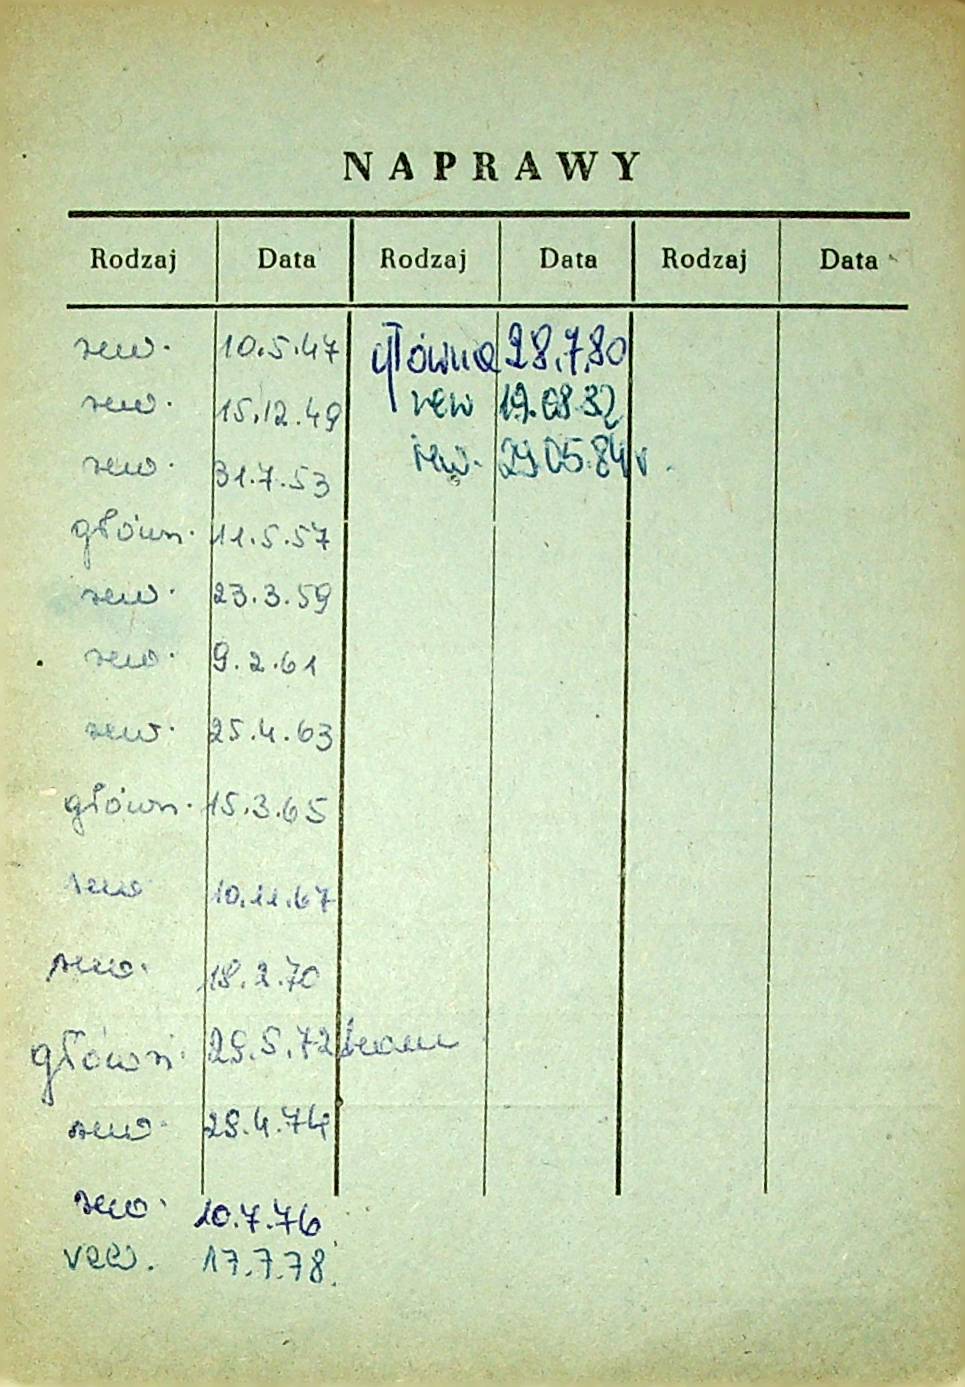 NAPRAWY
Rodzaj Data Rodzaj Data Rodzaj Data
rew. 10.5.47 główna 28.7.80
rew. 15.12.49 rew 19.08.82
rew. 31.7.53 rew. 29.05.84 r.
główn. 11.5.57
rew. 23.3.59
rew. 9.2.61
rew. 25.4.63
główn. 15.3.65
rew 10.11.67
rew. 18.2.70
główn. 29.5.72
rew. 28.4.74
rew. 10.7.76
rew. 17.7.78.